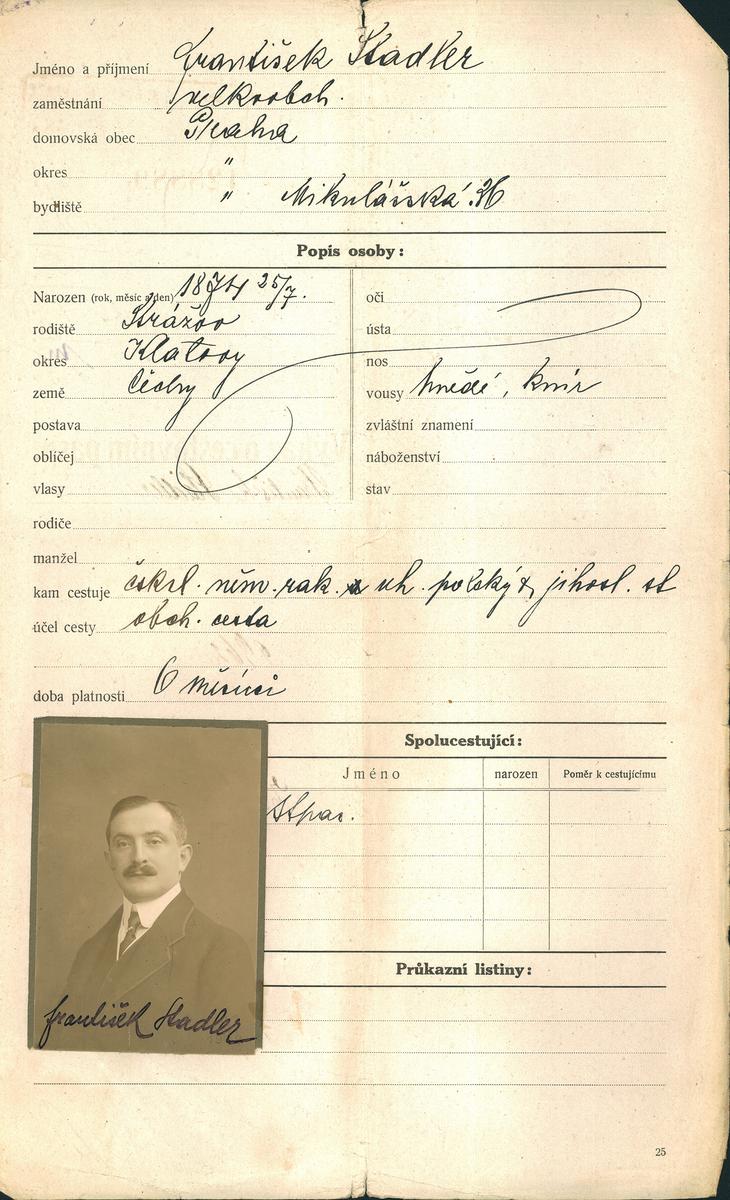 Jméno a příjmení František Stadler
zaměstnání velkoobch.
domovská obec Praha
okres "
bydliště " Mikulášská
Popis osoby:
Narozen (rok, měsíc a den) 1874 25/7.
rodiště Strážov
okres Klatovy
země Čechy
postava
obličej
vlasy
oči
ústa
nos
vousy hnědé, knír
zvláštní znamení
náboženství
stav
rodiče
manžel
kam cestuje čskl. něm. rak. uh. polský & jihosl. st
účel cesty obch. cesta
doba platnosti 6 měsíci
Spolucestující:
Jméno narozen Poměr k cestujícímu
Průkazní listiny:
František Stadler
25